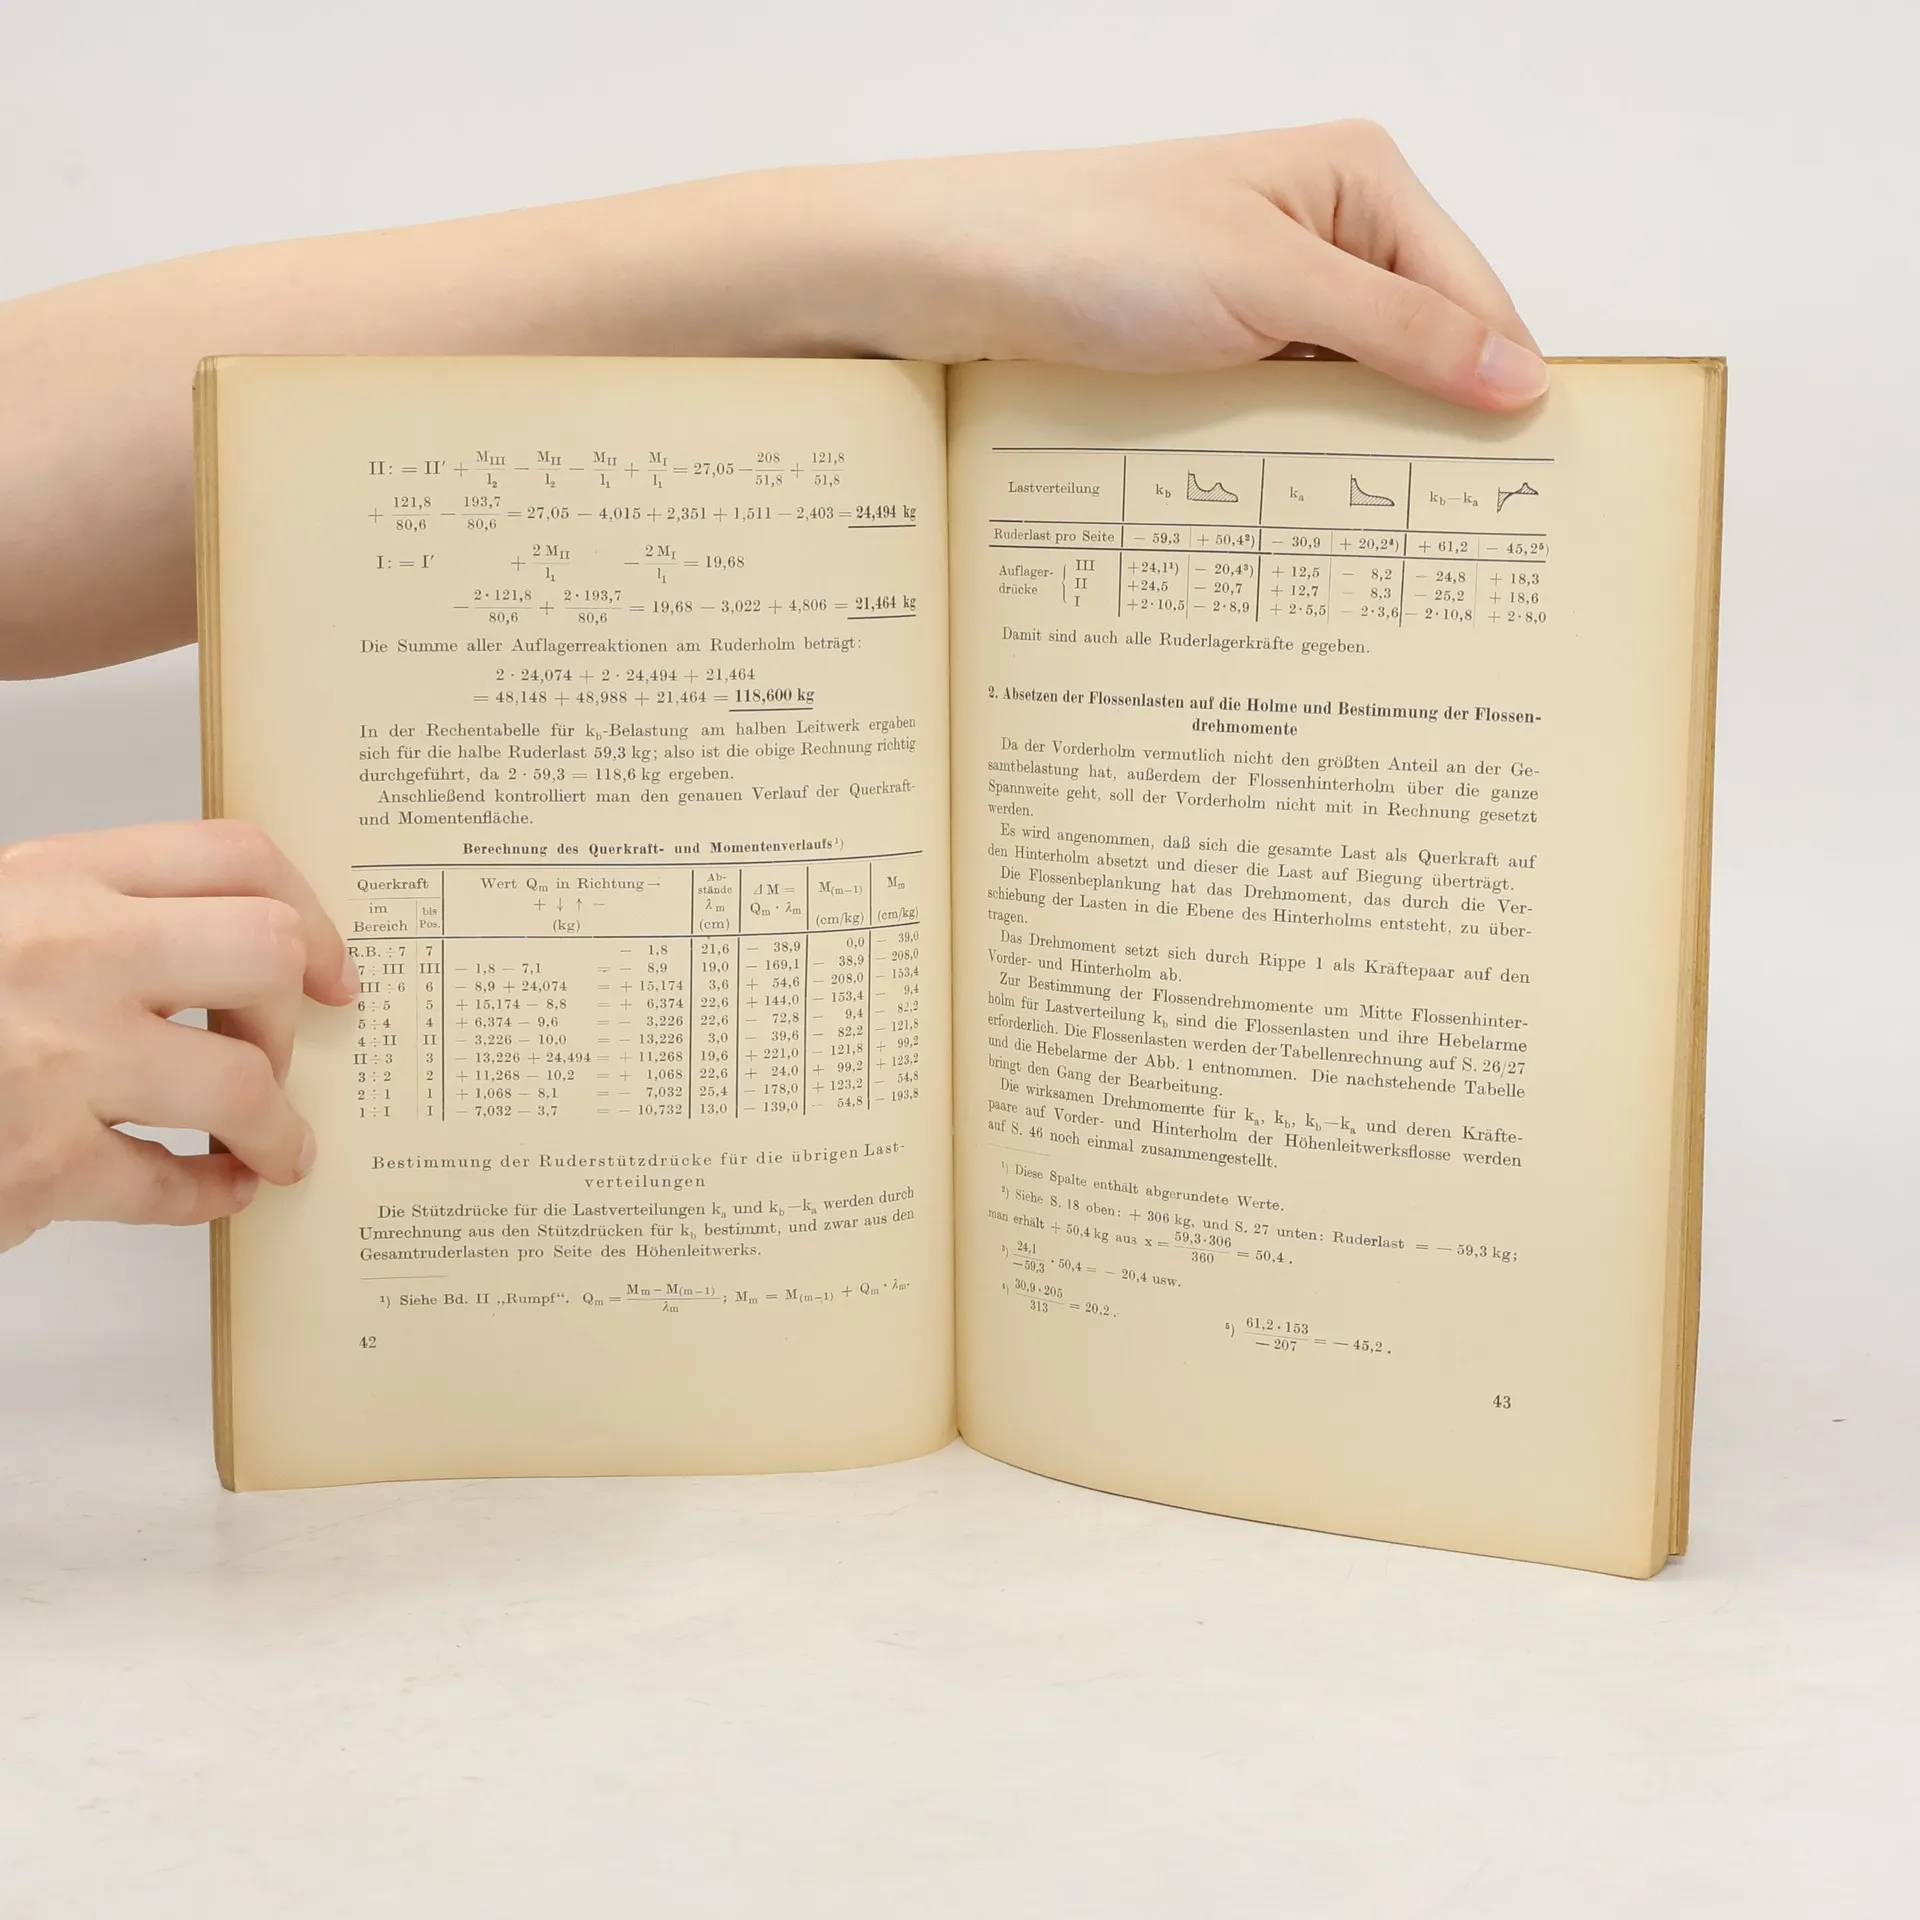 II: = II′ + M_III/l₂ − M_II/l₂ − M_II/l₁ + M_I/l₁ = 27,05 − 208/51,8 + 121,8/51,8
+ 121,8/80,6 − 193,7/80,6 = 27,05 − 4,015 + 2,351 + 1,511 − 2,403 = 24,494 kg
I: = I′ + 2 M_II/l₁ − 2 M_I/l₁ = 19,68
− 2·121,8/80,6 + 2·193,7/80,6 = 19,68 − 3,022 + 4,806 = 21,464 kg
Die Summe aller Auflagerreaktionen am Ruderholm beträgt:
2 · 24,074 + 2 · 24,494 + 21,464
= 48,148 + 48,988 + 21,464 = 118,600 kg
In der Rechentabelle für k_b-Belastung am halben Leitwerk ergaben
sich für die halbe Ruderlast 59,3 kg; also ist die obige Rechnung richtig
durchgeführt, da 2 · 59,3 = 118,6 kg ergeben.
Anschließend kontrolliert man den genauen Verlauf der Querkraft-
und Momentenfläche.
Berechnung des Querkraft- und Momentenverlaufs¹)
Querkraft | Wert Q_m in Richtung → | Ab-stände | ⊿ M = | M_(m−1) | M_m
im Bereich | bis Pos. | + ↓ ↑ − (kg) | λ_m (cm) | Q_m · λ_m | (cm/kg) | (cm/kg)
R.B. ÷ 7 | 7 | − 1,8 | 21,6 | − 38,9 | 0,0 | − 39,0
7 ÷ III | III | − 1,8 − 7,1 = − 8,9 | 19,0 | − 169,1 | − 38,9 | − 208,0
III ÷ 6 | 6 | − 8,9 + 24,074 = + 15,174 | 3,6 | + 54,6 | − 208,0 | − 153,4
6 ÷ 5 | 5 | + 15,174 − 8,8 = + 6,374 | 22,6 | + 144,0 | − 153,4 | − 9,4
5 ÷ 4 | 4 | + 6,374 − 9,6 = − 3,226 | 22,6 | − 72,8 | − 9,4 | − 82,2
4 ÷ II | II | − 3,226 − 10,0 = − 13,226 | 3,0 | − 39,6 | − 82,2 | − 121,8
II ÷ 3 | 3 | − 13,226 + 24,494 = + 11,268 | 19,6 | + 221,0 | − 121,8 | + 99,2
3 ÷ 2 | 2 | + 11,268 − 10,2 = + 1,068 | 22,6 | + 24,0 | + 99,2 | + 123,2
2 ÷ 1 | 1 | + 1,068 − 8,1 = − 7,032 | 25,4 | − 178,0 | + 123,2 | − 54,8
1 ÷ I | I | − 7,032 − 3,7 = − 10,732 | 13,0 | − 139,0 | − 54,8 | − 193,8
Bestimmung der Ruderstützdrücke für die übrigen Last-
verteilungen
Die Stützdrücke für die Lastverteilungen k_a und k_b—k_a werden durch
Umrechnung aus den Stützdrücken für k_b bestimmt, und zwar aus den
Gesamtruderlasten pro Seite des Höhenleitwerks.
¹) Siehe Bd. II „Rumpf“. Q_m = (M_m − M_(m−1))/λ_m; M_m = M_(m−1) + Q_m · λ_m.
42
Lastverteilung | k_b | k_a | k_b—k_a
Ruderlast pro Seite | − 59,3 | + 50,4²) | − 30,9 | + 20,2⁴) | + 61,2 | − 45,2⁵)
Auflager- III | +24,1¹) | − 20,4³) | + 12,5 | − 8,2 | − 24,8 | + 18,3
drücke II | +24,5 | − 20,7 | + 12,7 | − 8,3 | − 25,2 | + 18,6
I | +2·10,5 | − 2·8,9 | + 2·5,5 | − 2·3,6 | − 2·10,8 | + 2·8,0
Damit sind auch alle Ruderlagerkräfte gegeben.
2. Absetzen der Flossenlasten auf die Holme und Bestimmung der Flossen-
drehmomente
Da der Vorderholm vermutlich nicht den größten Anteil an der Ge-
samtbelastung hat, außerdem der Flossenhinterholm über die ganze
Spannweite geht, soll der Vorderholm nicht mit in Rechnung gesetzt
werden.
Es wird angenommen, daß sich die gesamte Last als Querkraft auf
den Hinterholm absetzt und dieser die Last auf Biegung überträgt.
Die Flossenbeplankung hat das Drehmoment, das durch die Ver-
schiebung der Lasten in die Ebene des Hinterholms entsteht, zu über-
tragen.
Das Drehmoment setzt sich durch Rippe 1 als Kräftepaar auf den
Vorder- und Hinterholm ab.
Zur Bestimmung der Flossendrehmomente um Mitte Flossenhinter-
holm für Lastverteilung k_b sind die Flossenlasten und ihre Hebelarme
erforderlich. Die Flossenlasten werden der Tabellenrechnung auf S. 26/27
und die Hebelarme der Abb. 1 entnommen. Die nachstehende Tabelle
bringt den Gang der Bearbeitung.
Die wirksamen Drehmomente für k_a, k_b, k_b—k_a und deren Kräfte-
paare auf Vorder- und Hinterholm der Höhenleitwerksflosse werden
auf S. 46 noch einmal zusammengestellt.
¹) Diese Spalte enthält abgerundete Werte.
²) Siehe S. 18 oben: + 306 kg, und S. 27 unten: Ruderlast = − 59,3 kg;
man erhält + 50,4 kg aus x = 59,3·306/360 = 50,4.
³) 24,1/−59,3 · 50,4 = − 20,4 usw.
⁴) 30,9·205/313 = 20,2.
⁵) 61,2·153/−207 = − 45,2.
43